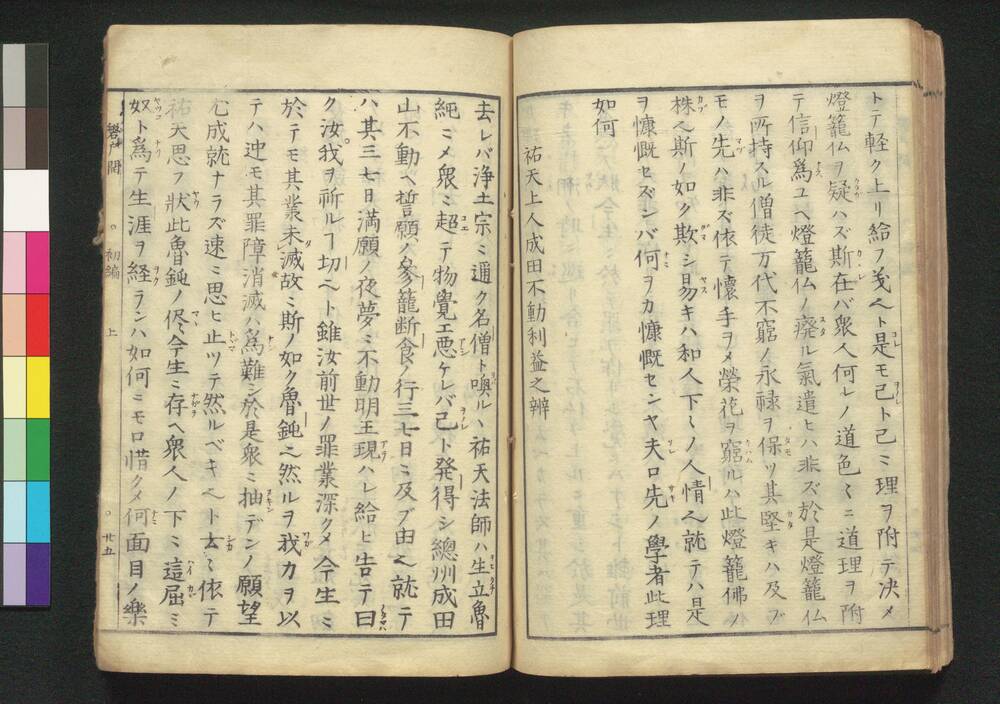 トテ軽ク上リ給フ茂ヘト是モ己ト己ミ理ヲ附テ决メ
燈籠仏ヲ疑ハズ斯在バ衆人何レノ道色〻ニ道理ヲ附
テ信仰爲ユヘ燈籠仏ノ廃ル氣遣ヒハ非ズ於是燈籠仏
ヲ所持スル僧徒万代不窮ノ永禄ヲ保ツ其堅キハ及ブ
モノ先ハ非ズ依テ懷手ヲメ榮花ヲ窮ルハ此燈籠佛ノ
株ヘ斯ノ如ク欺シ易キハ和人下〻ノ人情ヘ就テハ是
ヲ慷慨セズンバ何ヲカ慷慨センヤ夫ロ先ノ學者此理
如何
祐天上人成田不動利益之辨
去レバ浄土宗ミ通ク名僧ト喚ルハ祐天法師ハ生立魯
純ミメ衆ミ超テ物覺エ悪ケレバ己ト発得シ總州成田
山不動ヘ誓願ノ参籠断食ノ行三七日ミ及ブ由之就テ
ハ其三七日満願ノ夜夢ミ不動明王現ハレ給ヒ告テ曰
ク汝我ヲ祈ルヿ切ヘト雖汝前世ノ罪業深クメ今生ミ
於テモ其業未滅故ミ斯ノ如ク魯鈍ヘ然ルヲ我カヲ以
テハ迚モ其罪障消滅ハ爲難シ於是衆ミ抽デンノ願望
尤成就ナラズ速ミ思ヒ止ツテ然ルベキヘト云〻依テ
祐天思フ状此魯鈍ノ侭今生ミ存ヘ衆人ノ下ミ這屈ミ
奴ト爲テ生涯ヲ経ランハ如何ニモロ惜クメ何面目ノ樂
初編
上
廿五